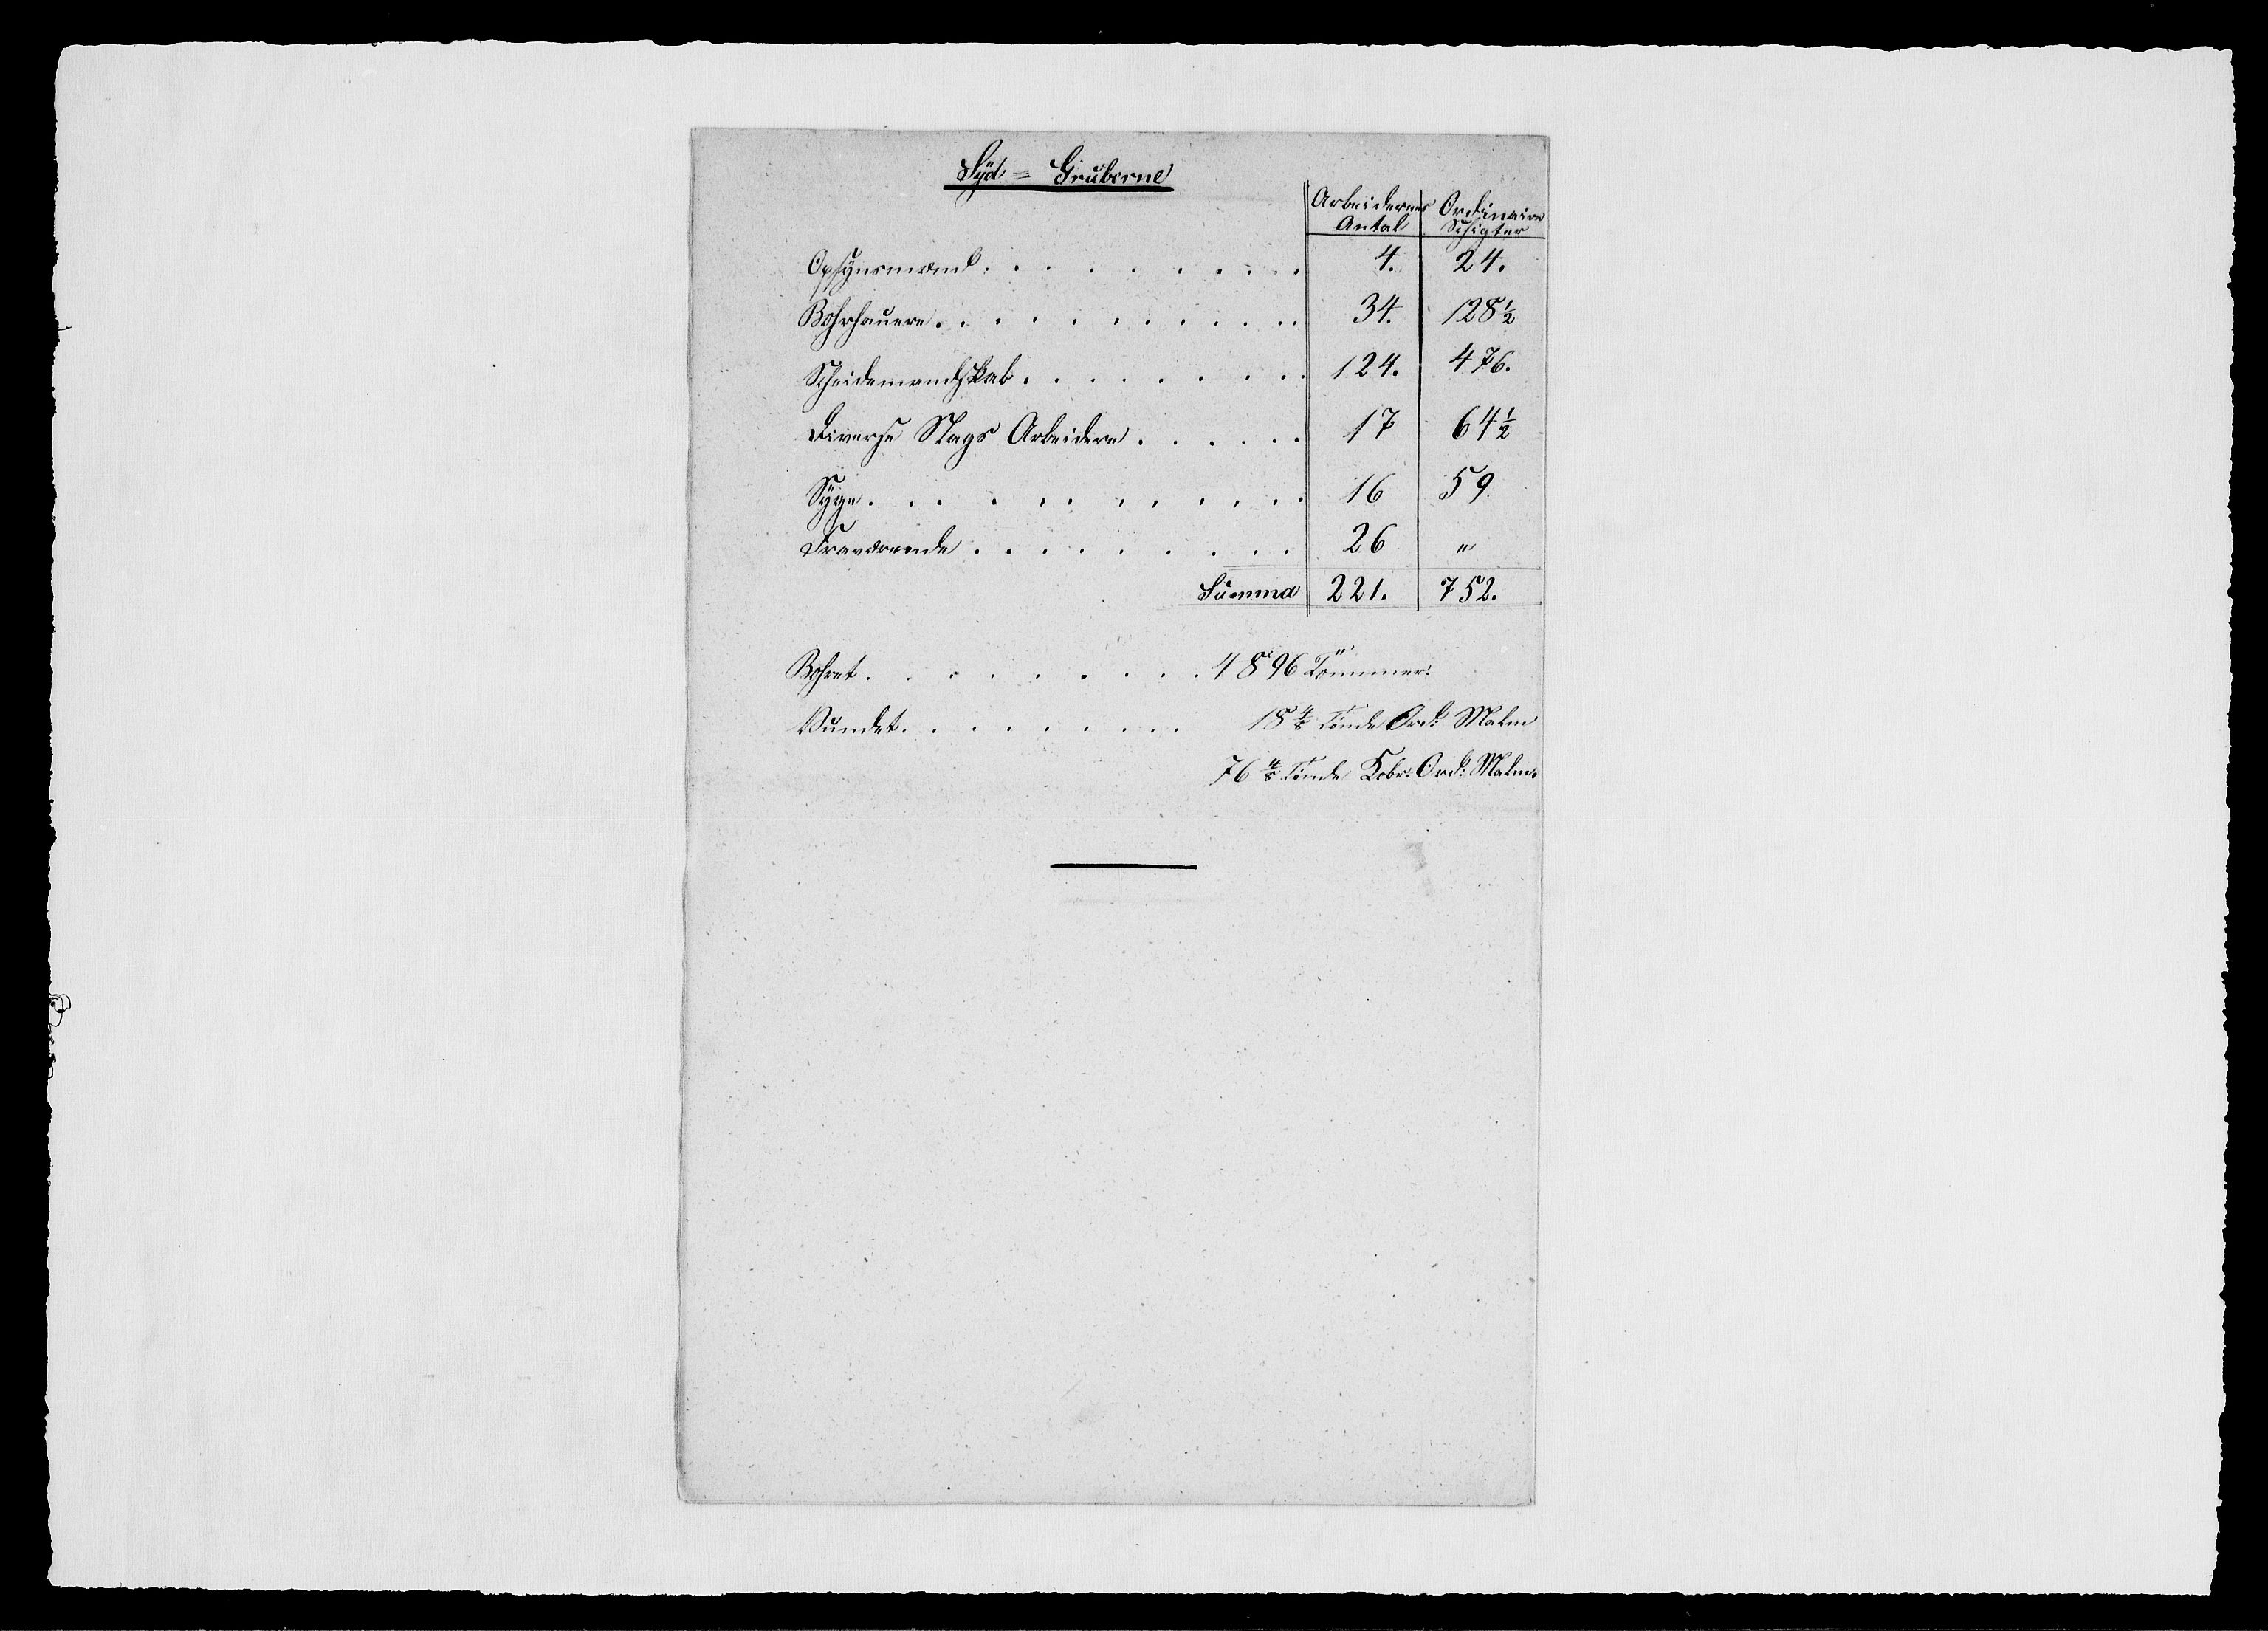 Syd = Gruberne
Arbeidernes Antal | Ordinaire Schigter
Opsynsmænd . . . . . . . . 4. 24.
Bohrhauere . . . . . . . . 34. 128 1/2
Scheidemandskab . . . . . . . . 124. 476.
Diverse Slags Arbeidere . . . . . . 17 64 1/2
Syge . . . . . . . . 16 59.
Fraværende . . . . . . . . 26 "
Summa 221. 752.
Bohret . . . . . . . . 4896 Tommer.
Vundet . . . . . . . . 18 4/8 Tönde Ord: Malm
76 4/8 Tönde Kobr: Ord: Malm.